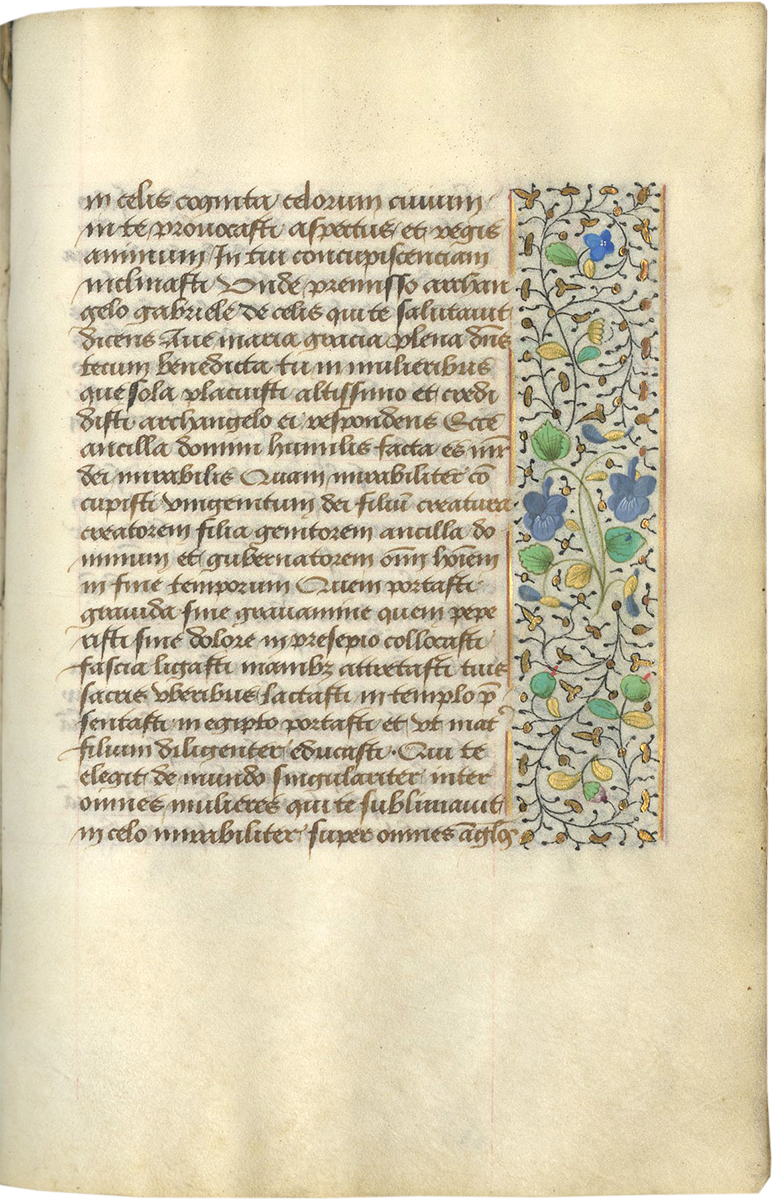 in celis cognita celorum ciuium
in te prouocasti aspectus et regis
animum In tui concupiscenciam
inclinasti Unde premisso archan
gelo gabriele de celis qui te salutauit
dicens Aue maria gracia plena dn̄s
tecum benedicta tu in mulieribus
que sola placuisti altissimo et credi
disti archangelo ei respondens Ecce
ancilla domini humilis facta es mr̄
dei mirabilis Quam mirabiliter cō
cupisti vnigenitum dei filiū creatura
creatorem filia genitorem ancilla do
minum et gubernatorem om̄i hōiem
in fine temporum Quem portasti
grauida sine grauamine quem pepe
risti sine dolore in presepio collocasti
fascia ligasti manibꝫ attretasti tuis
sacris vberibus lactasti in templo p̄
sentasti in egipto portasti et vt mat᷒
filium diligenter educasti · Qui te
elegit de mundo singulariter inter
omnes mulieres qui te sublimauit
in celo mirabiliter super omnes āglos